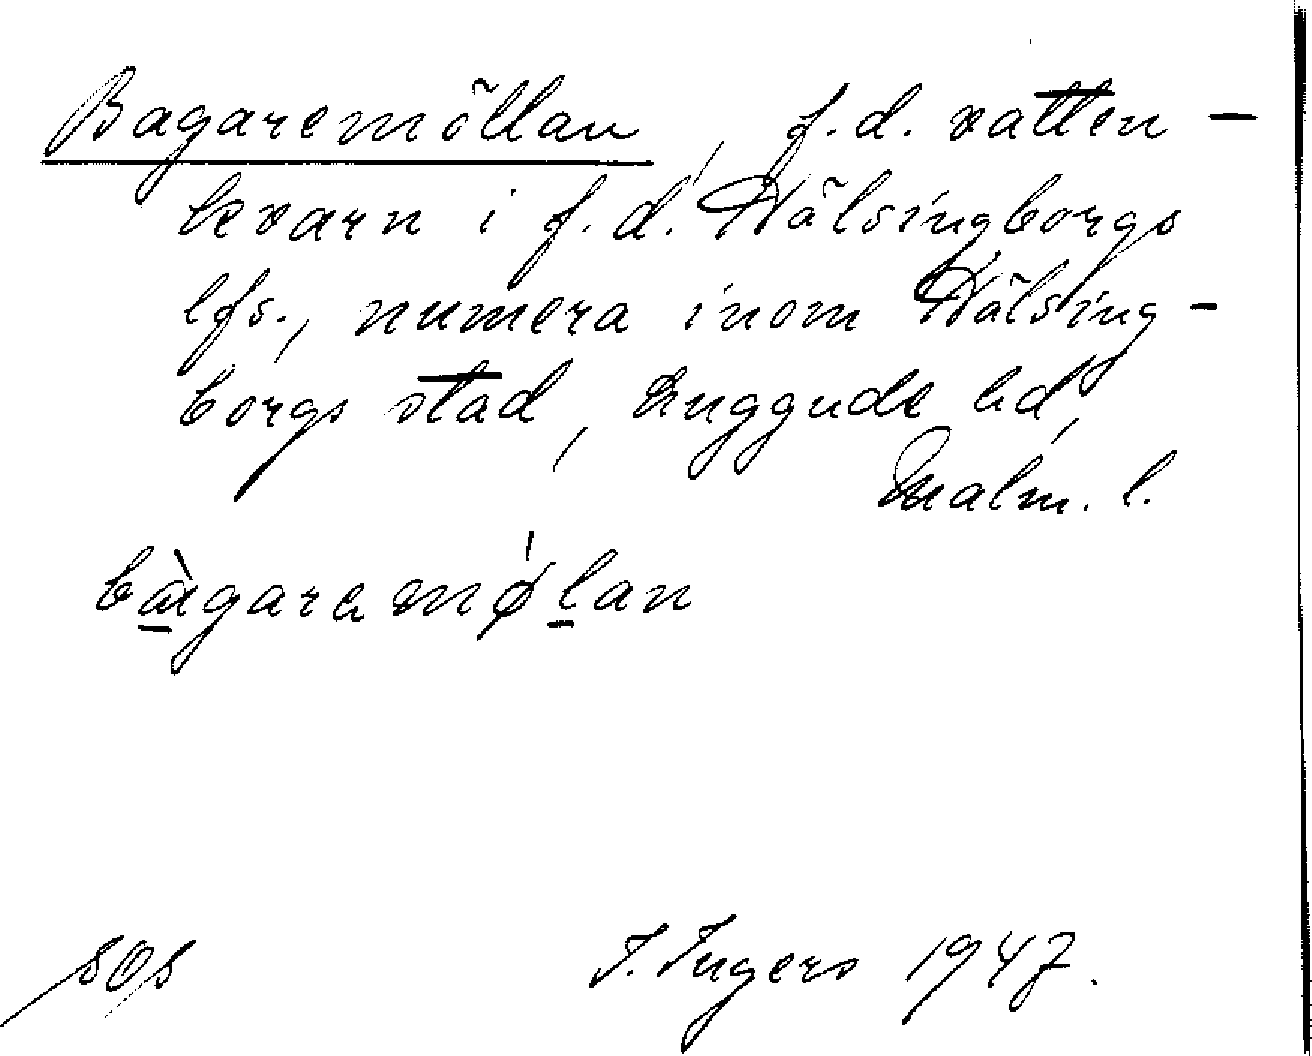 Bagaremöllan, f.d. vatten-
kvarn i f.d. Hälsingborgs
lfs., numera inom Hälsing-
borgs stad, Luggude hd,
Malm. l.
bàgaramǿlan
sos I. Ingers 1947.